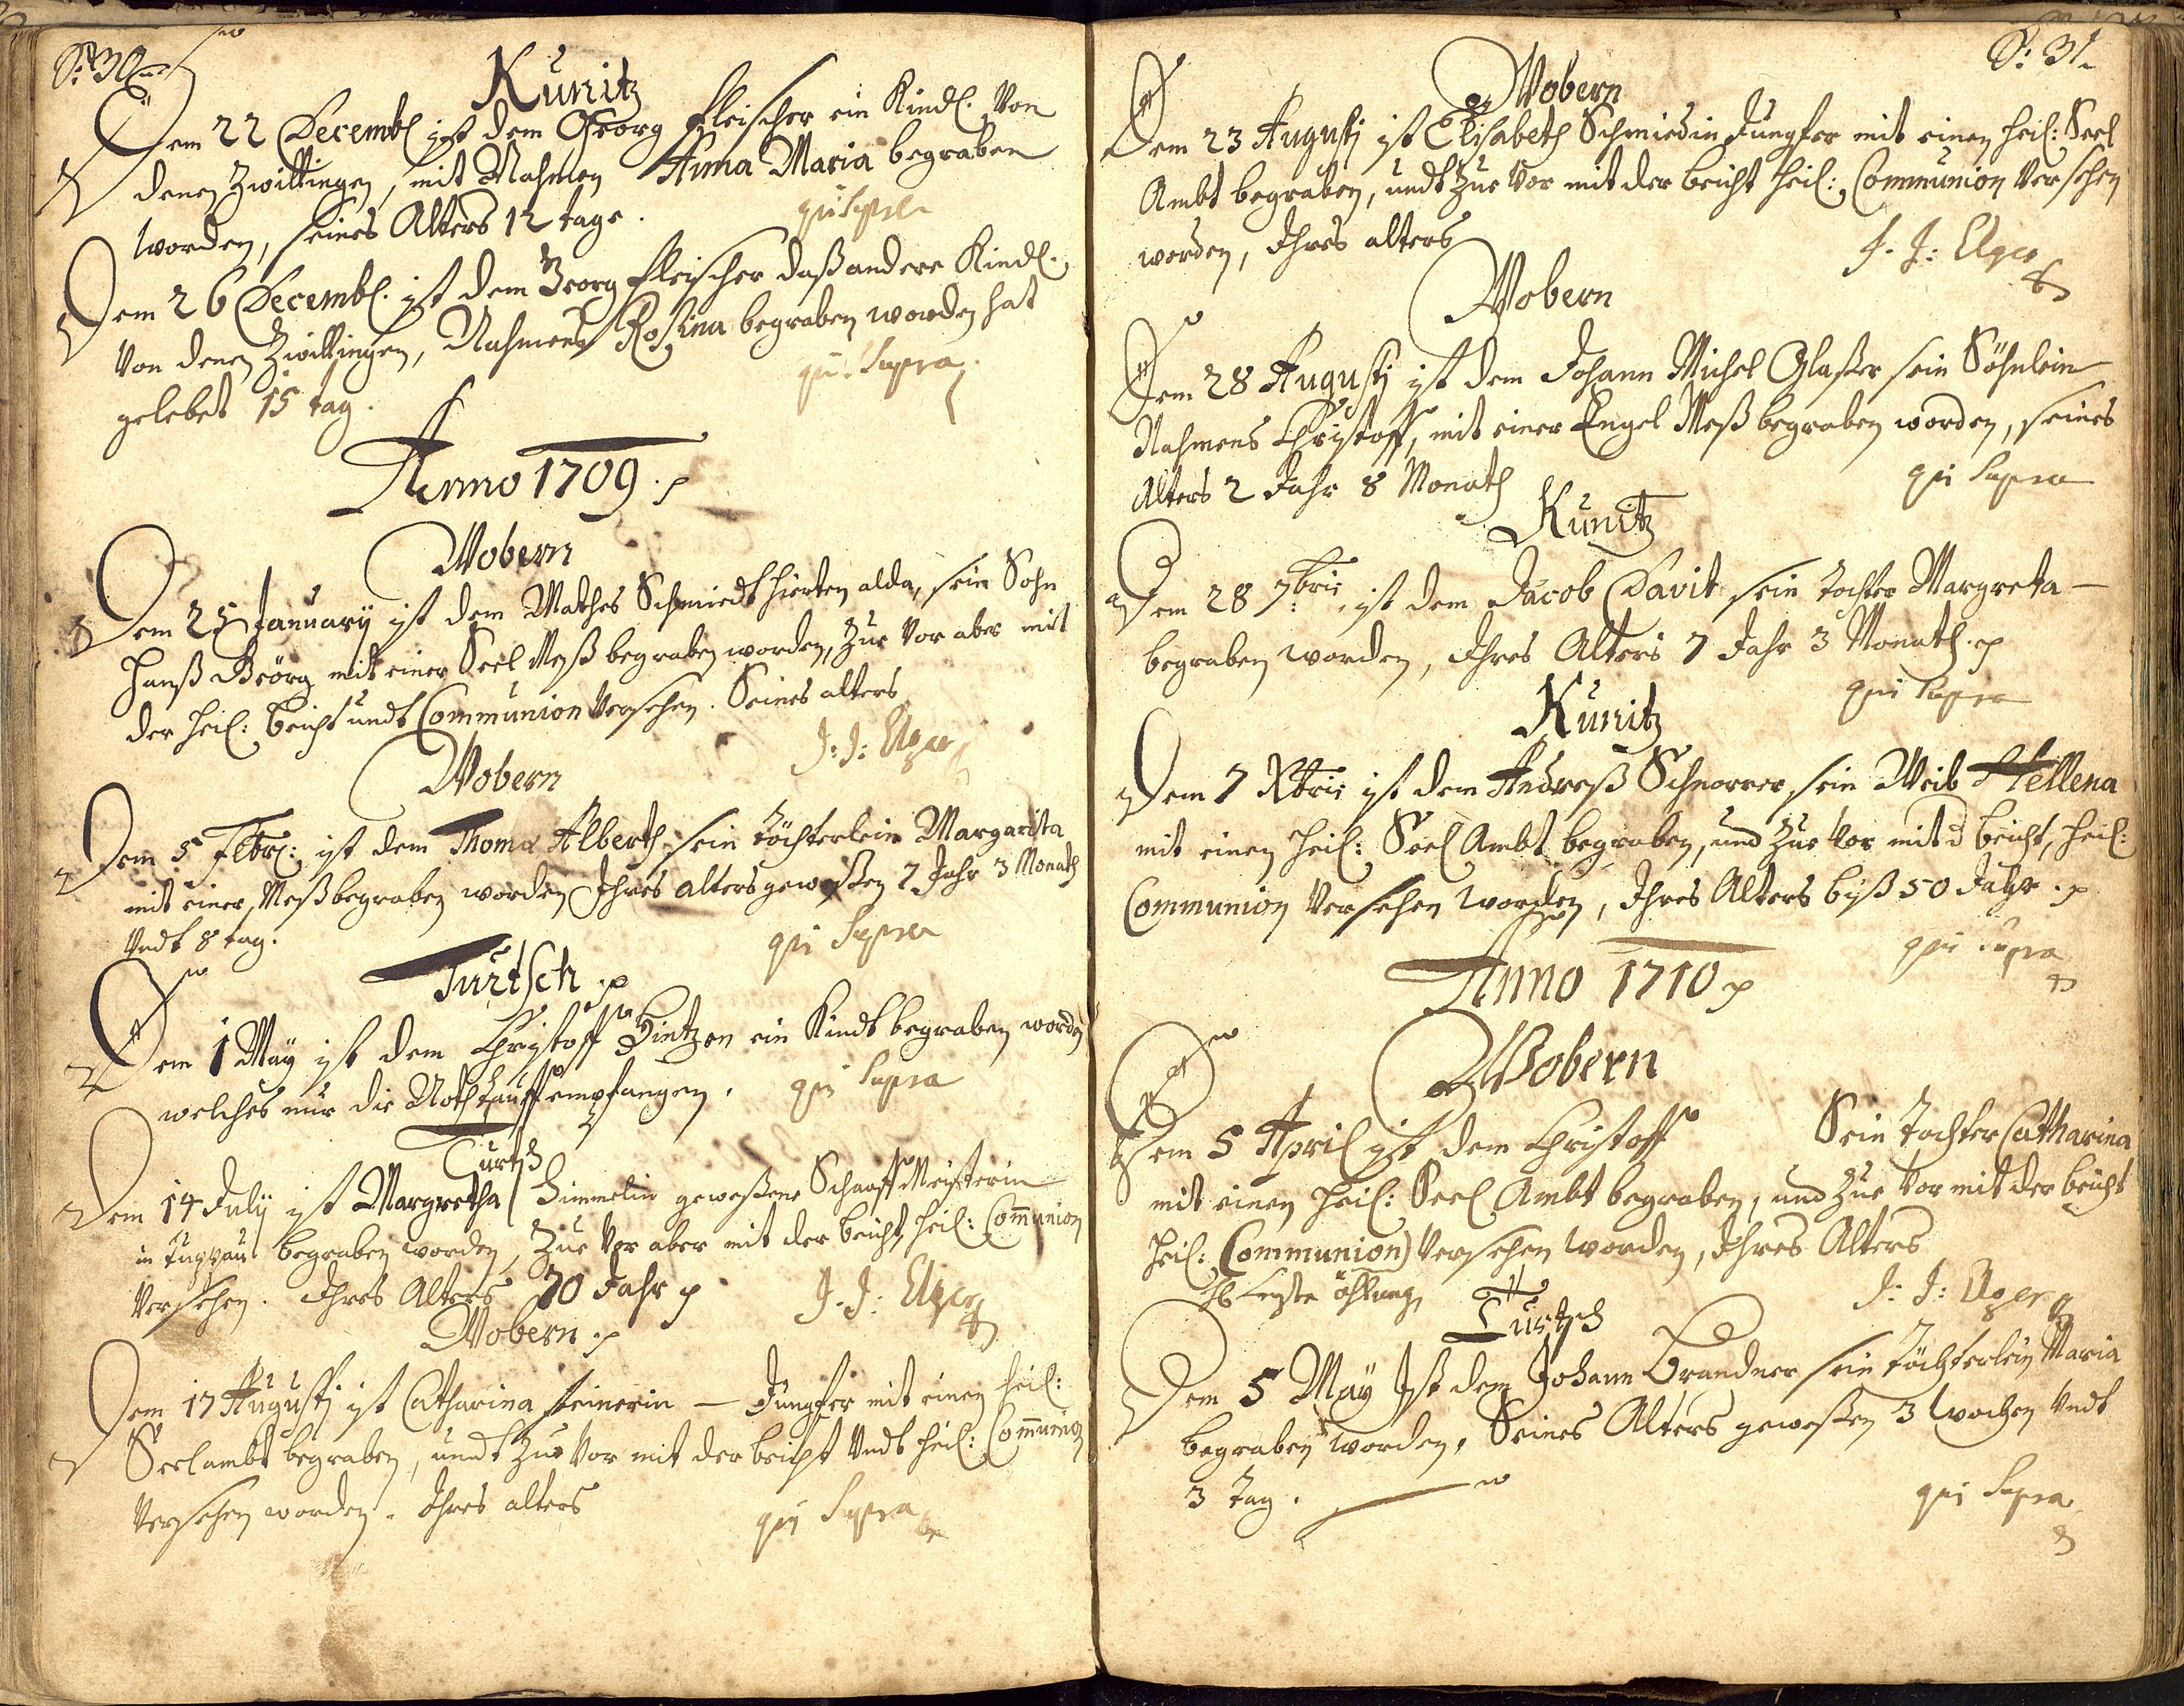 S: 30
Kunitz
Dem 22 Decembl ist dem Georg Fleischer ein Kindl. Von
denen Zwillingen, mit Nahmen Anna Maria begraben
worden, seines Alters 12 tage.
qui supra
Dem 26 Decembl. ist dem Georg Fleischer daß andere Kindl.
Von denen Zwillingen, Nahmens Rosina begraben worden hat
gelebet 15 tag.
qui Supra
Anno 1709
Wobern
Dem 25 January ist dem Mathes Schmiedt hierten alda, sein Sohn
Hanß Geörg mit einer Seel Meß begraben worden, Zue Vor aber mit
der heil: beicht undt Communion Versehen. Seines alters
J: J: Elger
Wobern
Dem 5 Febr: ist dem Thoma Alberth sein töchterlein Margarita
mit einer Meß begraben worden Ihres alters geweßen 7 Jahr 3 Monath
Undt 8 tag.
qui Supra
Turtsch
Dem 1 May ist dem Christoff Hintzen ein Kindt begraben worden
welches nur die Noth tauff empfangen.
qui Supra
Turtsch
Dem 14 July ist Margretha Himmelin geweßene Schaaff Meisterin
in begraben worden, Zue Vor aber mit der beicht, heil: Com̅union
Versehen. Ihres Alters 70 Jahr
J. J: Elger
Wobern
Dem 17 Augusti ist Catharina steinerin — Jungfer mit einen heil:
Seelambt begraben, undt Zue Vor mit der beicht Undt heil: Com̅union
Versehen worden. Ihres alters
qui Supra
S: 31
Wobern
Dem 23 Augusti ist Elisabeth Schmiedin Jungfer mit einen heil: Seel
Ambt begraben, undt Zue Vor mit der beicht heil: Communion Versehen
worden, Ihres alters
J. J: Elger
Wobern
Dem 28 Augusti ist dem Johann Michel Glaßer sein Söhnlein
Nahmens Christoff, mit einer Engel Meß begraben worden, seines
Alters 2 Jahr 8 Monath
qui Supra
Kunitz
Dem 28 7bris, ist dem Jacob Davit sein tochter Margreta —
begraben worden, Ihres Alters 7 Jahr 3 Monath
qui Supra
Kunitz
Dem 7 Xbris ist dem Andreß Schnorrer, sein Weib Hellena
mit einen heil: Seel Ambt begraben, und Zue Vor mit d beicht, heil:
Communion Versehen worden, Ihres Alters biß 50 Jahr
qui supra
Anno 1710
Wobern
Dem 5 April ist dem Christoff Sein Tochter Catharina
mit einen heil: Seel Ambt begraben, und Zue Vor mit der beicht
heil: Communion Versehen worden, Ihres Alters
Letzte öhlung
J: J: Elger
Turtsch
Dem 5 May Ist dem Johann Brandner sein Töchterlein Maria
begraben worden, Seines Alters geweßen 3 wochen Undt
3 tag.
qui Supra